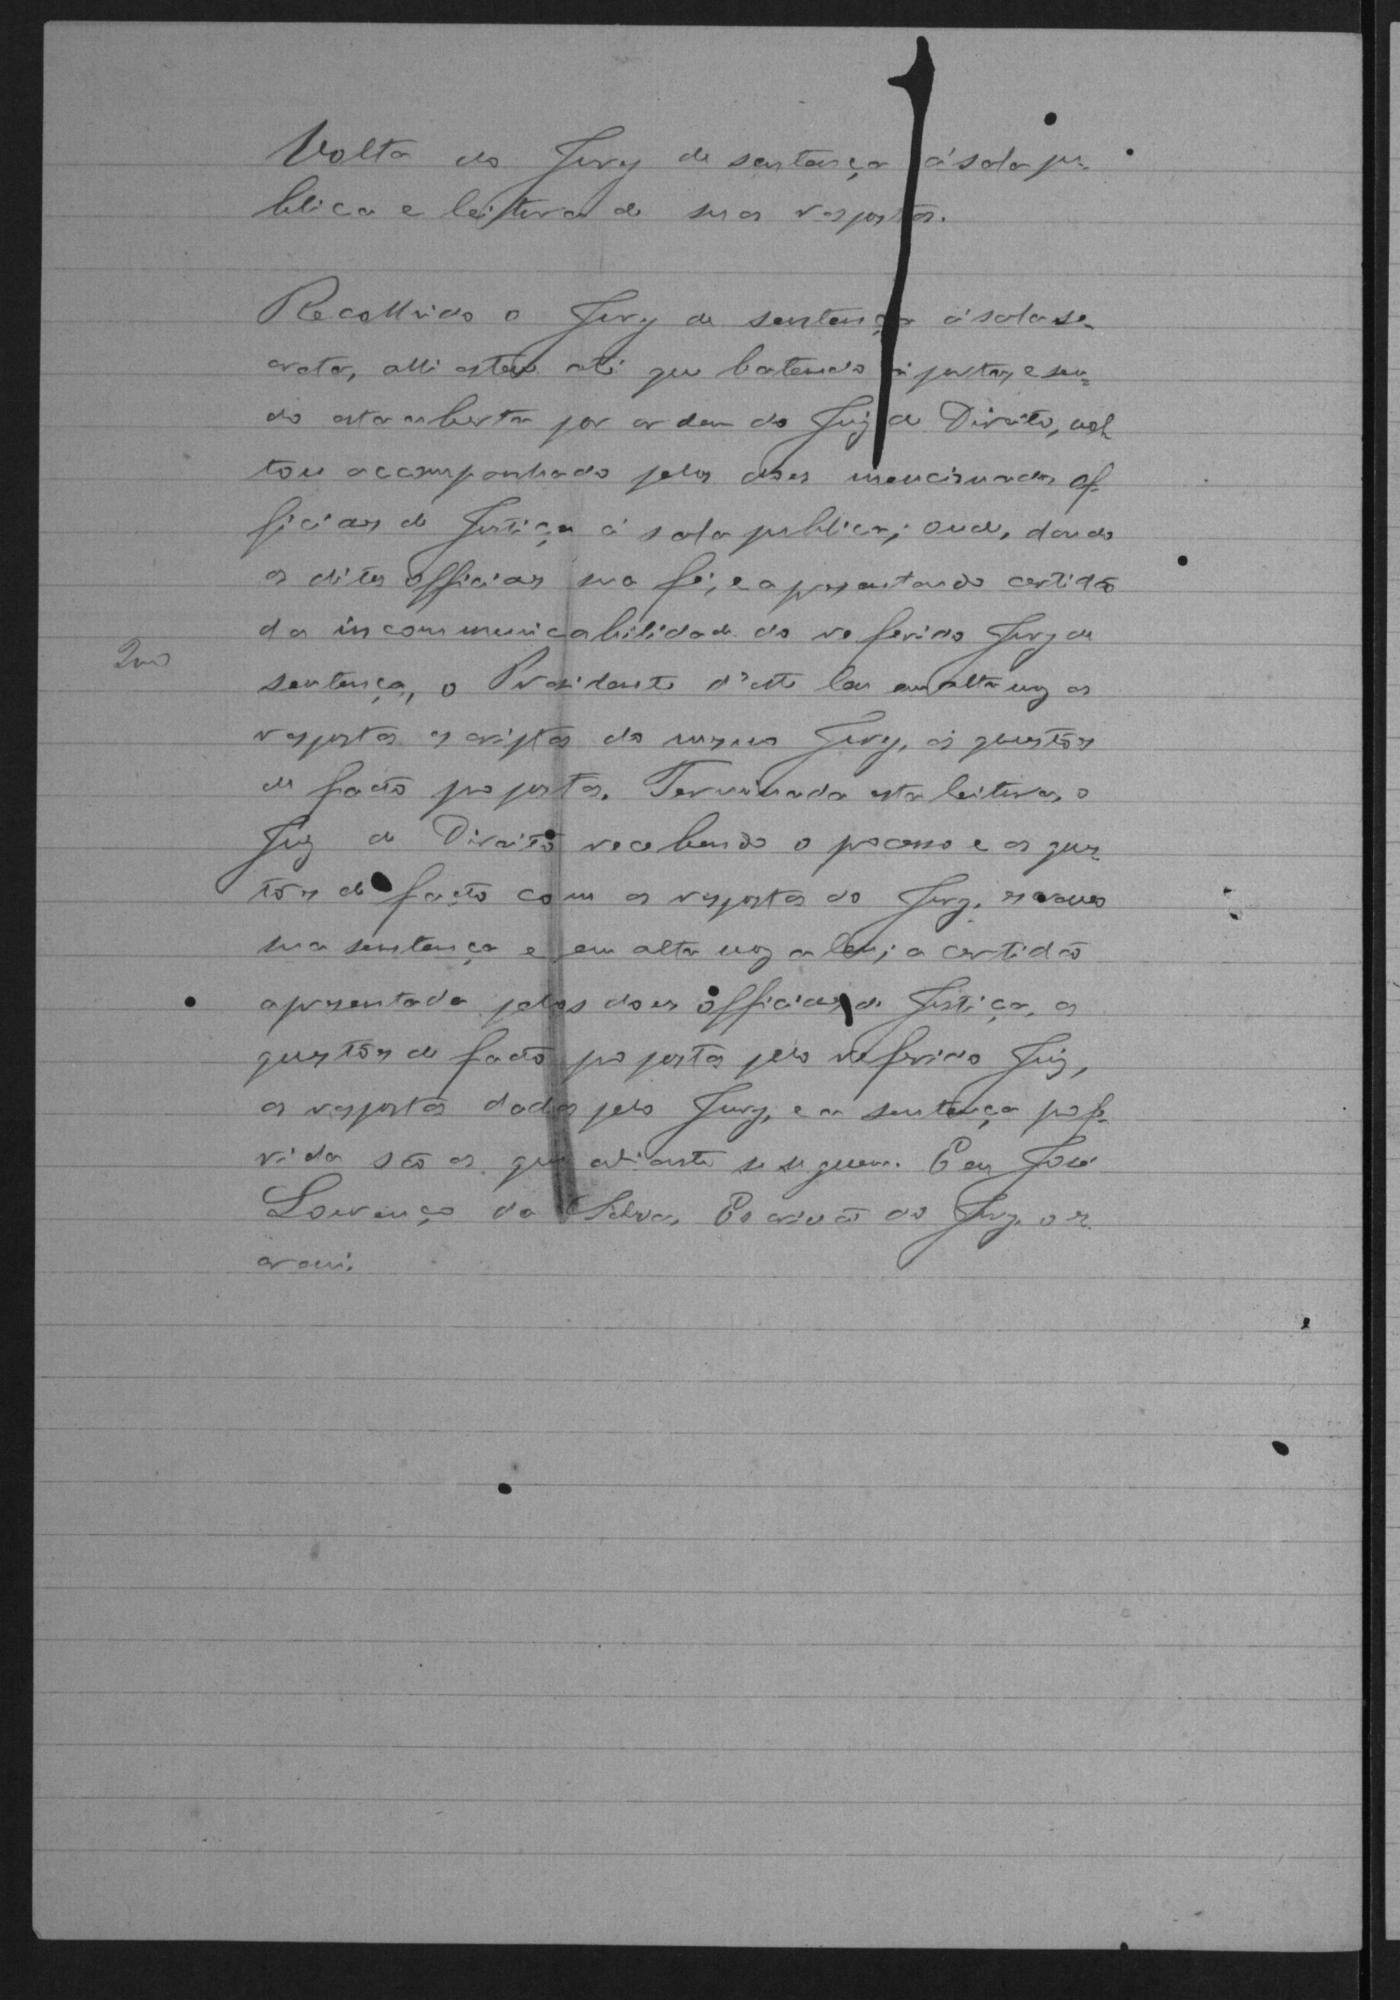 Volta do Jury de sentença á sala pu-
blica e leitura de suas respostas.
Recolhido o Jury de sentença á sala se-
creta, alli esteve até que batendo á porta, e sen-
do esta aberta por ordem do Juiz de Direito, vol-
tou accompanhado pelos does mencionados of-
ficiaes de Justiça á sala publica; onde, dando
os ditos officiaes sua fé, e apresentando certidão
da incommunicabilidade do referido Jury de
sentença, o Presidente d'este leu em alta voz as
respostas escriptas do mesmo Jury, ás questões
de facto propostas. Terminada esta leitura, o
Juiz de Direito recebendo o processo e as ques-
tões de facto com as respostas do Jury, escreveu
sua sentença e em alta voz a leu; a certidão
apresentada pelos does officiaes de Justiça, as
questões de facto propostas pelo referido Juiz,
as respostas dadas pelo Jury, e a sentença profe-
rida são as que adiante se seguem. Eu José
Lourenço da Silva, Escrivão do Jury, o es-
crevi.